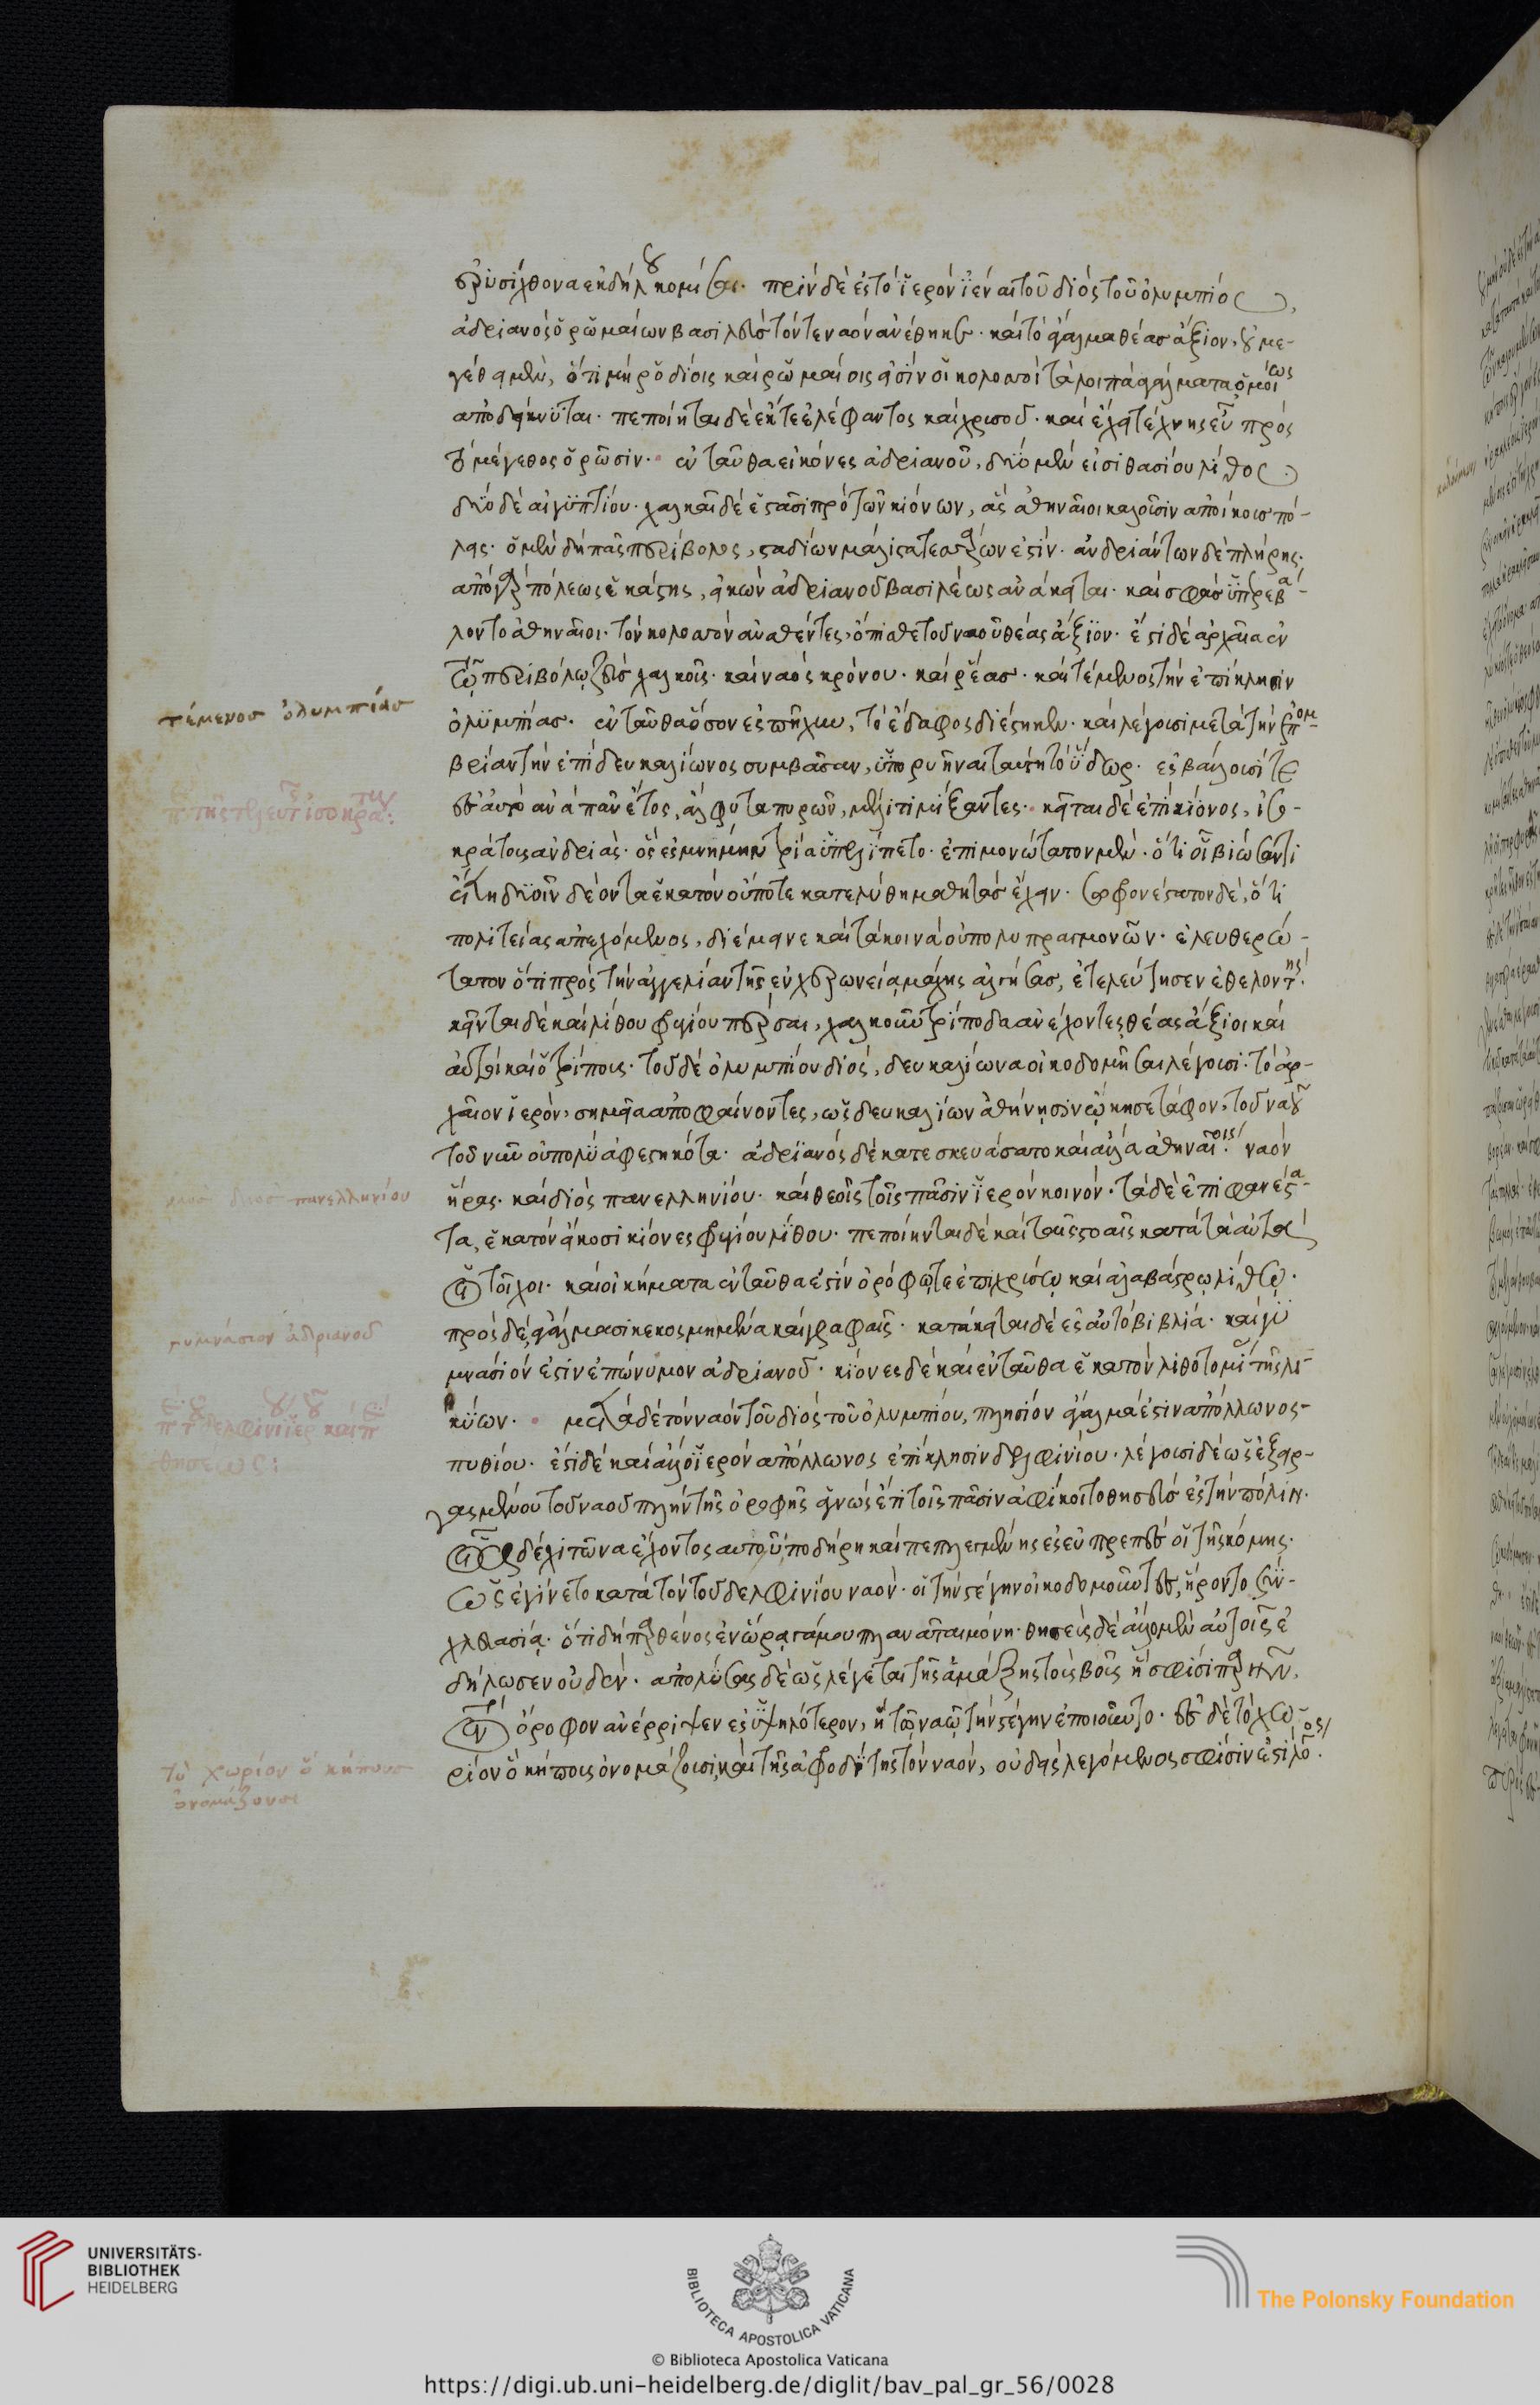 ἐρυσίχθονα ἐκ δήλου κομίσαι· πρὶν δὲ ἐς τὸ ἱερὸν ἰέναι τοῦ διὸς τοῦ ὀλυμπίου,
ἀδριανὸς ὁ ῥωμαίων βασιλεὺς τόν τε ναὸν ἀνέθηκε· καὶ τὸ ἄγαλμα θέας ἄξιον, οὗ με-
γέθει μὲν, ὅτι μὴ ῥοδίοις καὶ ῥωμαίοις εἰσὶν οἱ κολοσσοὶ τὰ λοιπὰ ἀγάλματα ὁμοίως
ἀποδείκνυται· πεποίηται δὲ ἔκ τε ἐλέφαντος καὶ χρυσοῦ· καὶ ἔχει τέχνης εὖ πρὸς
τὸ μέγεθος ὁρῶσιν· ἐνταῦθα εἰκόνες ἀδριανοῦ, δύο μέν εἰσι θασίου λίθου
δύο δὲ αἰγυπτίου· χαλκαῖ δὲ ἑστᾶσι πρὸ τῶν κιόνων, ἃς ἀθηναῖοι καλοῦσιν ἀποίκους πό-
λεις· ὁ μὲν δὴ πᾶς περίβολος, σταδίων μάλιστα τεσσάρων ἐστίν· ἀνδριάντων δὲ πλήρης·
ἀπὸ γὰρ πόλεως ἑκάστης, εἰκὼν ἀδριανοῦ βασιλέως ἀνάκειται· καὶ σφᾶς ὑπερεβά-
λοντο ἀθηναῖοι· τὸν κολοσσὸν ἀναθέντες, ὄπισθε τοῦ ναοῦ θέας ἄξιον· ἔστι δὲ ἀρχαῖα ἐν
τῷ περιβόλῳ ζεὺς χαλκοῦς· καὶ ναὸς κρόνου· καὶ ῥέας· καὶ τέμενος τὴν ἐπίκλησιν
τέμενος ὀλυμπίας
ὀλυμπίας· ἐνταῦθα ὅσον ἐς πῆχυν, τὸ ἔδαφος διέστηκεν· καὶ λέγουσι μετὰ τὴν ἐπομ-
βρίαν τὴν ἐπὶ δευκαλίωνος συμβᾶσαν, ὑπορυῆναι ταύτῃ τὸ ὕδωρ· ἐσβάλλουσί τε
ἐς αὐτὸ ἀνὰ πᾶν ἔτος, ἄλφιτα πυρῶν, μέλιτι μίξαντες· κεῖται δὲ ἐπὶ κίονος, ἰσο-
κράτους ἀνδριὰς· ὃς ἐς μνήμην τρία ὑπελίπετο· ἐπιμονώτατον μὲν· ὅτι οἱ βιώσαντι
ἔτη δυοῖν δέοντα ἑκατὸν οὔποτε κατελύθη μαθητὰς ἔχειν· σωφρονέστατον δέ, ὅτι
πολιτείας ἀπεχόμενος, διέμεινε καὶ τὰ κοινὰ οὐ πολυπραγμονῶν· ἐλευθερώ-
τατον ὅτι πρὸς τὴν ἀγγελίαν τῆς ἐν χερωνείᾳ μάχης ἀλγήσας, ἐτελεύτησεν ἐθελοντής·
κεῖνται δὲ καὶ λίθου φρυγίου πέρσαι, χαλκοῦν τρίποδα ἀνέχοντες θέας ἄξιοι καὶ
αὐτοὶ καὶ ὁ τρίπους· τοῦ δὲ ὀλυμπίου διὸς, δευκαλίωνα οἰκοδομῆσαι λέγουσι· τὸ ἀρ-
χαῖον ἱερὸν, σημεῖα ἀποφαίνοντες, ὡς δευκαλίων ἀθήνῃσιν ᾤκησε τάφον, τοῦ ναοῦ
τοῦ νῦν οὐ πολὺ ἀφεστηκότα· ἀδριανὸς δὲ κατεσκευάσατο καὶ ἄλλα ἀθηναίοις· ναὸν
διὸς πανελληνίου
ἥρας· καὶ διὸς πανελληνίου· καὶ θεοῖς τοῖς πᾶσιν ἱερὸν κοινὸν· τὰ δὲ ἐπιφανέστα-
τα, ἑκατὸν εἴκοσι κίονες φρυγίου λίθου· πεποίηνται δὲ καὶ ταῖς στοαῖς κατὰ τὰ αὐτὰ
οἱ τοῖχοι· καὶ οἰκήματα ἐνταῦθα ἐστὶν ὀρόφῳ τε ἐπιχρύσῳ καὶ ἀλαβάστρῳ λίθῳ·
γυμνάσιον ἀδριανοῦ
πρὸς δὲ ἀγάλμασι κεκοσμημένα καὶ γραφαῖς· κατάκειται δὲ ἐς αὐτὸ βιβλία· καὶ γυ
μνάσιόν ἐστιν ἐπώνυμον ἀδριανοῦ· κίονες δὲ καὶ ἐνταῦθα ἑκατὸν λιθοτομίας τῆς λι-
κύων· μετὰ δὲ τὸν ναὸν τοῦ διὸς τοῦ ὀλυμπίου, πλησίον ἄγαλμά ἐστιν ἀπόλλωνος
πυθίου· ἔστι δὲ καὶ ἄλλο ἱερὸν ἀπόλλωνος ἐπίκλησιν δελφινίου· λέγουσι δὲ ὡς ἐξειρ-
γασμένου τοῦ ναοῦ πλὴν τῆς ὀροφῆς ἀγνὼς ἔτι τοῖς πᾶσιν ἀφίκοιτο θησεὺς ἐς τὴν πόλιν·
οἷα δὲ χιτῶνα ἔχοντος αὐτοῦ ποδήρη καὶ πεπλεγμένης ἐς εὐπρεπὲς οἱ τῆς κόμης·
ὡς ἐγίνετο κατὰ τὸν τοῦ δελφινίου ναὸν· οἱ τὴν στέγην οἰκοδομοῦντες, ἤροντο σὺν
χλευασίᾳ· ὅτι δὴ παρθένος ἐν ὥρᾳ γάμου πλανᾶται μόνη· θησεὺς δὲ ἄλλο μὲν αὐτοῖς ἐ
δήλωσεν οὐδέν· ἀπολύσας δὲ ὡς λέγεται τῆς ἁμάξης τοὺς βοῦς ἥ σφισι παρῆν,
τὸν ὄροφον ἀνέρριψεν ἐς ὑψηλότερον, ἢ τῷ ναῷ τὴν στέγην ἐποιοῦντο· ἐς δὲ τὸ χω-
τὸ χωρίον ὃ κήπους
ὀνομάζουσι
ρίον ὃ κήπους ὀνομάζουσι, καὶ τῆς ἀφροδίτης τὸν ναὸν, οὐδεὶς λεγόμενος σφίσιν ἐστὶ λόγος.
UNIVERSITÄTS-
BIBLIOTHEK
HEIDELBERG
BIBLIOTECA APOSTOLICA VATICANA
The Polonsky Foundation
© Biblioteca Apostolica Vaticana
https://digi.ub.uni-heidelberg.de/diglit/bav_pal_gr_56/0028